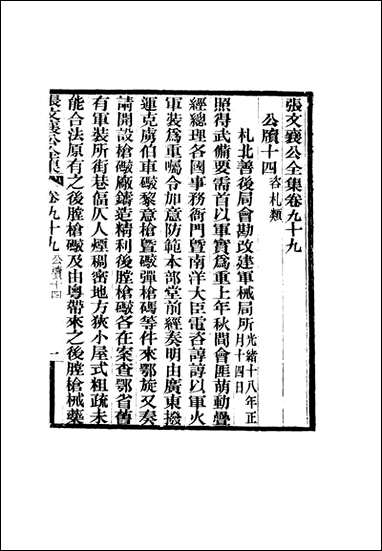 張文襄公全集卷九十九
公牘十四 咨札類
札北善後局會勘改建軍械局所 光緒十八年正月十四日
照得武備要需首以軍實爲重上年秋間會匪萌動疊
經總理各國事務衙門暨南洋大臣電咨諄諄以軍火
軍裝爲重囑令加意防範本部堂前經奏明由廣東撥
運克虜伯車礮黎意槍暨礮彈槍碼等件來鄂旋又奏
請開設槍礮廠鑄造精利後膛槍礮各在案查鄂省舊
有軍裝所街巷偪仄人煙稠密地方狹小屋式粗疏未
能合法原有之後膛槍礮及由粵帶來之後膛槍械藥
張文襄公全集 卷九十九 公牘十四 一